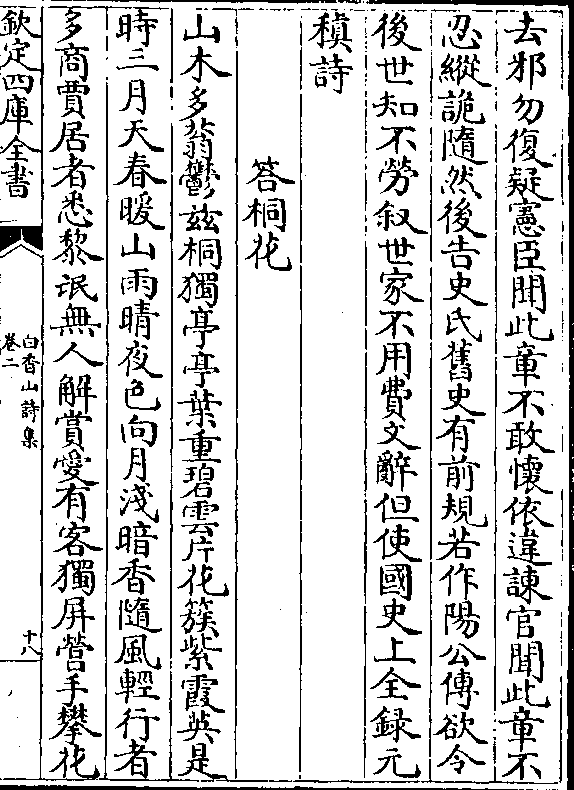 去邪勿復疑憲臣聞此章不敢懷依違諫官聞此章不
忍縱詭隨然後告史氏舊史有前規若作陽公傳欲令
後世知不勞叙世家不用費文辭但使國史上全録元
稹詩
答桐花
山木多蓊鬱兹桐獨亭亭葉重碧雲片花簇紫霞英是
時三月天春暖山雨晴夜色向月淺暗香隨風輕行者
多商賈居者悉黎氓無人解賞愛有客獨屏營手攀花
欽定四庫全書
白香山詩集
卷二
十八